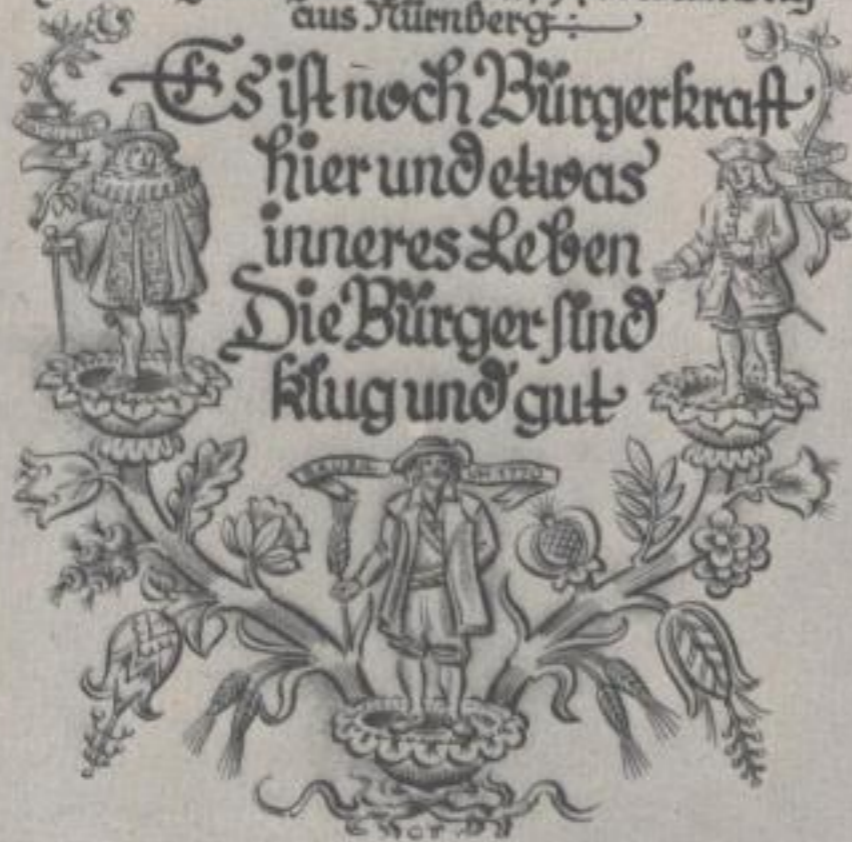 aus Nürnberg:
Es ist noch Bürgerkraft
hier und etwas
inneres Leben
Die Bürger sind
klug und gut